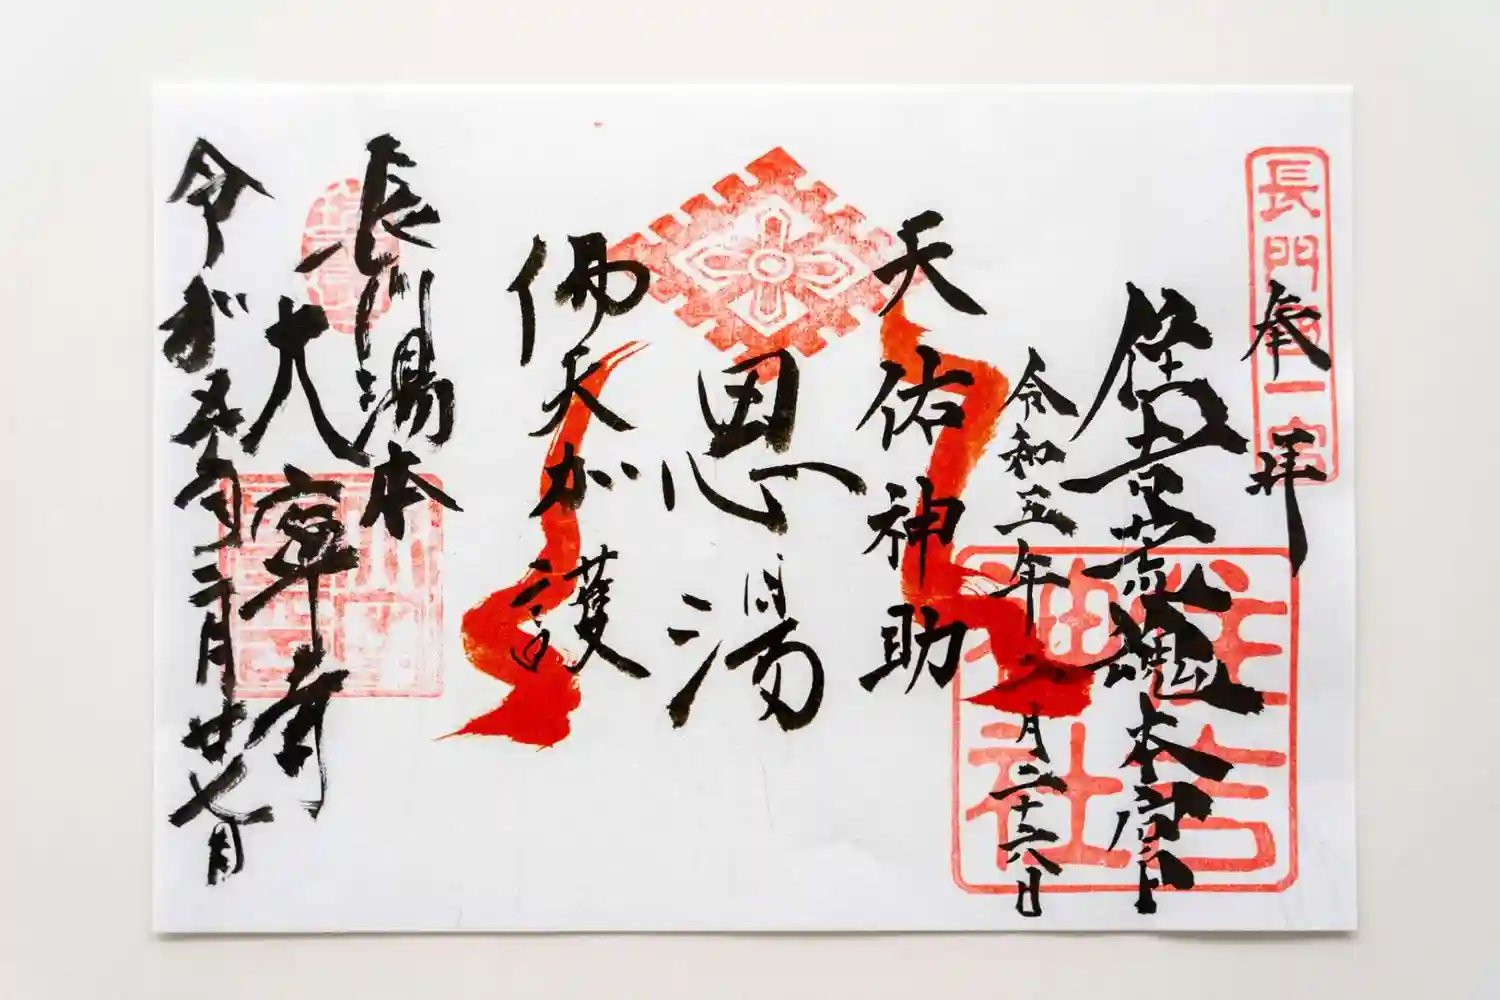 長門國一宮
奉拝
住吉荒魂本宮
住吉
神社
令和五年
月二十六日
天佑神助
恩湯
佛天加護
長門湯本
大寧寺
三月廿七日